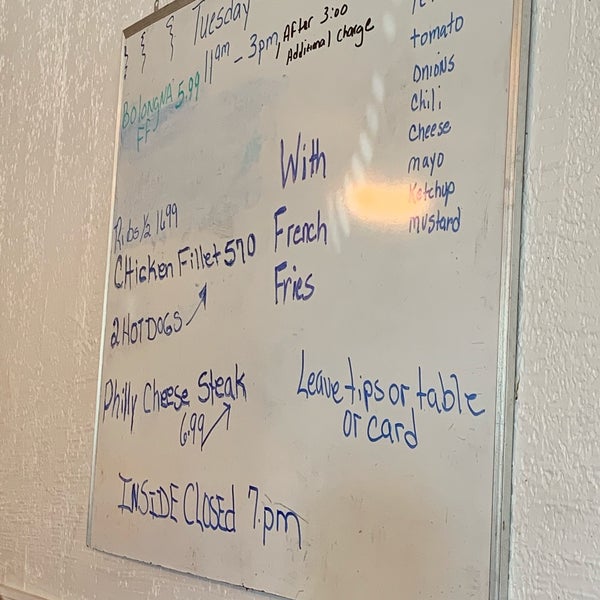 Tuesday
11am - 3pm, After 3:00
Additional charge
BOlOngNA 5.99
FF
With
French
Fries
tomato
ONiONS
chili
cheese
mayo
Ketchup
mustard
Ribs 1/2 1699
CHicken Fillet 570
2 HOTDOGS
Philly Cheese Steak
6.99
Leave tips or table
or card
INSiDE CLOSED 7:pm